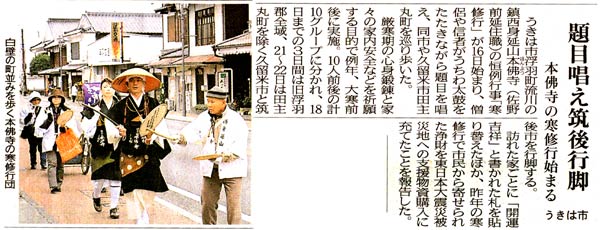 題目唱え筑後行脚
本佛寺の寒修行始まる
うきは市
うきは市浮羽町流川の
鎮西身延山本佛寺(佐野
前延住職)の恒例行事「寒
修行」が16日始まり、僧
侶や信者がうちわ太鼓を
たたきながら題目を唱
え、同市や久留米市田主
丸町を巡り歩いた。
厳寒期の心身鍛錬と家
々の家内安全などを祈願
する目的で例年、大寒前
後に実施。10人前後の計
10グループに分かれ、18
日までの3日間は旧浮羽
郡全域、21〜22日は田主
丸町を除く久留米市と筑
後市を行脚する。
訪れた家ごとに「開運
吉祥」と書かれた札を貼
り替えたほか、昨年の寒
修行で市民から寄せられ
た浄財を東日本大震災被
災地への支援物資購入に
充てたことを報告した。
白壁の町並みを歩く本佛寺の寒修行団